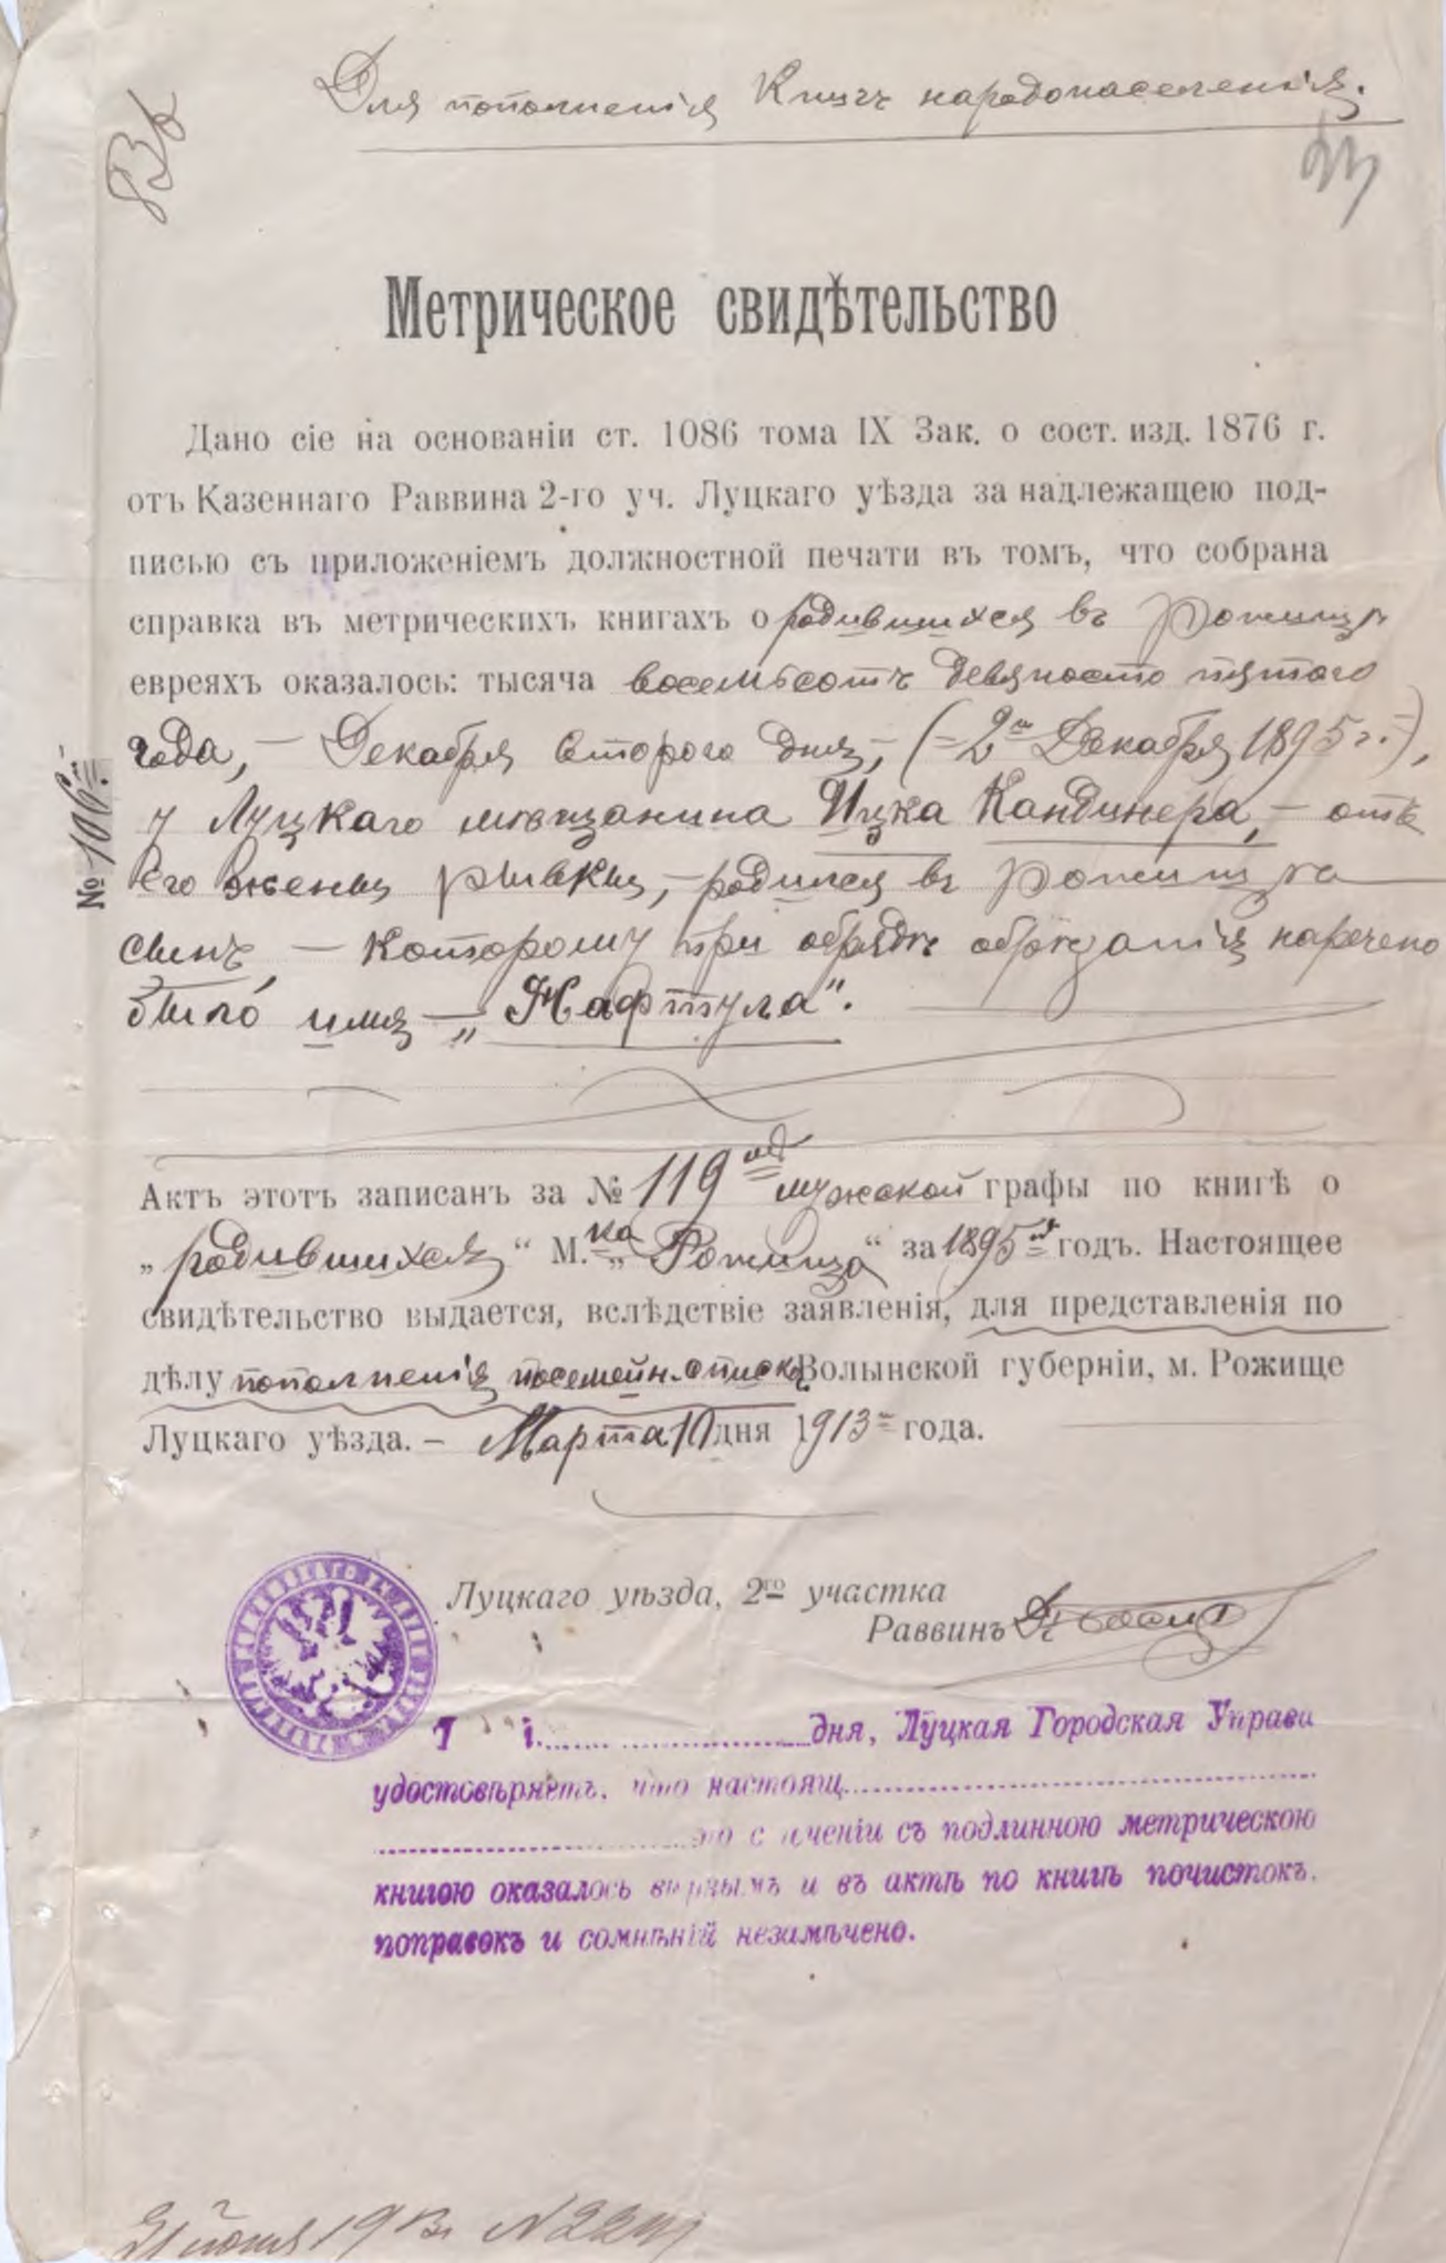 Для пополненія Книгъ народонаселенія.
Метрическое свидѣтельство
Дано сіе на основаніи ст. 1086 тома IX Зак. о сост. изд. 1876 г.
отъ Казеннаго Раввина 2-го уч. Луцкаго уѣзда за надлежащею под-
писью съ приложеніемъ должностной печати въ томъ, что собрана
справка въ метрическихъ книгахъ о родившихся въ Рожищѣ
евреяхъ оказалось: тысяча восемьсотъ девяносто пятого
года, — Декабря второго дня, — (=2го Декабря 1895 г.=),
у Луцкаго мѣщанина Ицка Кандинера, — отъ
его жены Ривки, — родился въ Рожищѣ
сынъ, — которому при обрядѣ обрѣзанія наречено
было имя — „Нафтула".
№ 106
Актъ этотъ записанъ за № 119 мужской графы по книгѣ о
„родившихся" М.ка „Рожища" за 1895й годъ. Настоящее
свидѣтельство выдается, вслѣдствіе заявленія, для представленія по
дѣлу пополненія посемейн. списка Волынской губерніи, м. Рожище
Луцкаго уѣзда. — Марта 10 дня 1913 года.
Луцкаго уѣзда, 2го участка
Раввинъ
дня, Луцкая Городская Управа
удостовѣряетъ, что настоящ
съ подлинною метрическою
книгою оказалось вѣрнымъ и въ актѣ по книгѣ почистокъ,
поправокъ и сомнѣній незамѣчено.